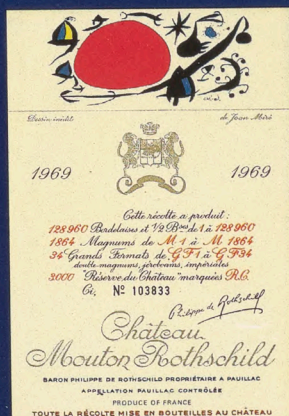 Dessin inédit de Joan Miró
1969 1969
Cette récolte a produit :
128960 Bordelaises et 1/2 Bses de 1 à 128960
1864 Magnums de M 1 à M 1864
34 Grands Formats de G F 1 à G F 34
double magnums, jéroboams, impériales
3000 "Réserve du Château" marquées R.C.
Ci, Nº 103833
Philippe de Rothschild
Château
Mouton Rothschild
BARON PHILIPPE DE ROTHSCHILD PROPRIÉTAIRE A PAUILLAC
APPELLATION PAUILLAC CONTRÔLÉE
PRODUCE OF FRANCE
TOUTE LA RÉCOLTE MISE EN BOUTEILLES AU CHÂTEAU